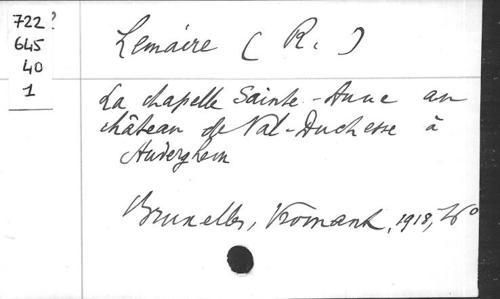 722?
645
40
1
Lemaire (R.)
La chapelle Sainte-Anne au
château de Val-Duchesse à
Auderghem
Bruxelles, Vromant, 1918, 4º